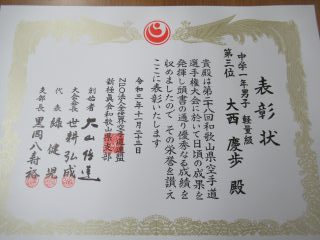 表彰状
中学一年男子 軽量級
第三位
大西 慶歩 殿
貴殿は第二十八回和歌山県空手道
選手権大会に於いて日頃の成果を
発揮し頭書の通り優秀なる成績を
収めましたので その栄誉を讃え
ここに表彰いたします
令和三年十一月二十三日
NPO法人全世界空手道連盟
新極真会和歌山県支部
創始者 大山倍達
大会会長 世耕弘成
代表 緑健児
支部長 黒岡八寿裕